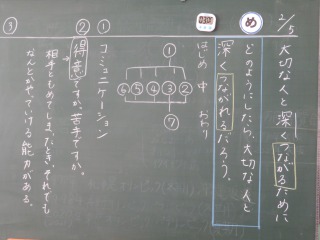 2/5
大切な人と深くつながるために
め
どのようにしたら、大切な人と
深くつながれるだろう。
はじめ 中 おわり
①
⑥⑤④③②
⑦
① コミュニケーション
② 得意ですか。苦手ですか。
相手ともめてしまったとき、それでも
なんとかやっていける能力がある。
③